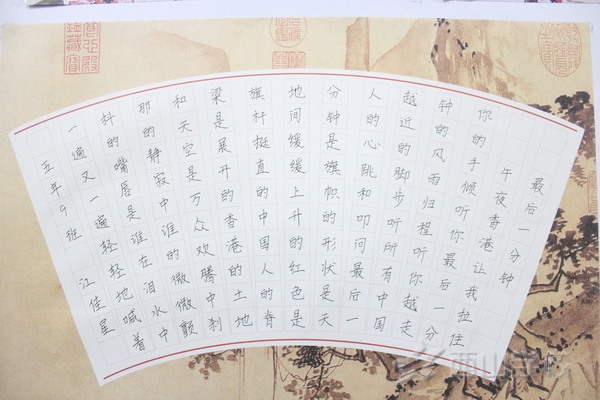 最后一分钟
午夜香港让我拉住
你的手倾听你最后一分
钟的风雨归程听你越走
越近的脚步听所有中国
人的心跳和叩问最后一
分钟是旗帜的形状是天
地间缓缓上升的红色是
旗杆挺直的中国人的脊
梁是展开的香港的土地
和天空是万众欢腾中刹
那的静寂中谁的微微颤
抖的嘴唇是谁在泪水中
一遍又一遍轻轻地喊着
五年9班 江佳星
西山学校